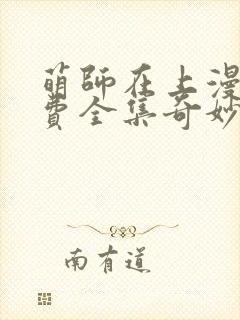 萌師在上漫
費全集奇妙
南有道